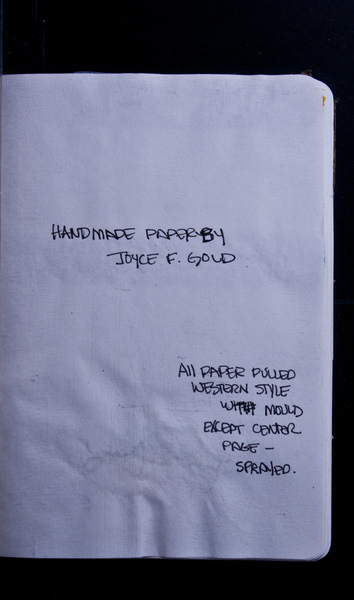 HANDMADE PAPER BY
JOYCE F. GOUD
All PAPER PULLED
WESTERN STYLE
WITH MOULD
EXCEPT CENTER
PAGE -
SPRAYED.